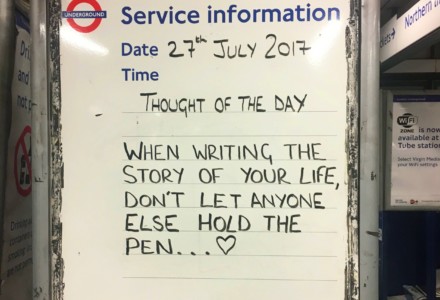 UNDERGROUND
Service information
Date 27th JULY 2017
Time
THOUGHT OF THE DAY
WHEN WRITING THE
STORY OF YOUR LIFE,
DON'T LET ANYONE
ELSE HOLD THE
PEN...♡
Northern
WiFi
ZONE
is now
available at
Tube station
Select Virgin Media
your WiFi settings